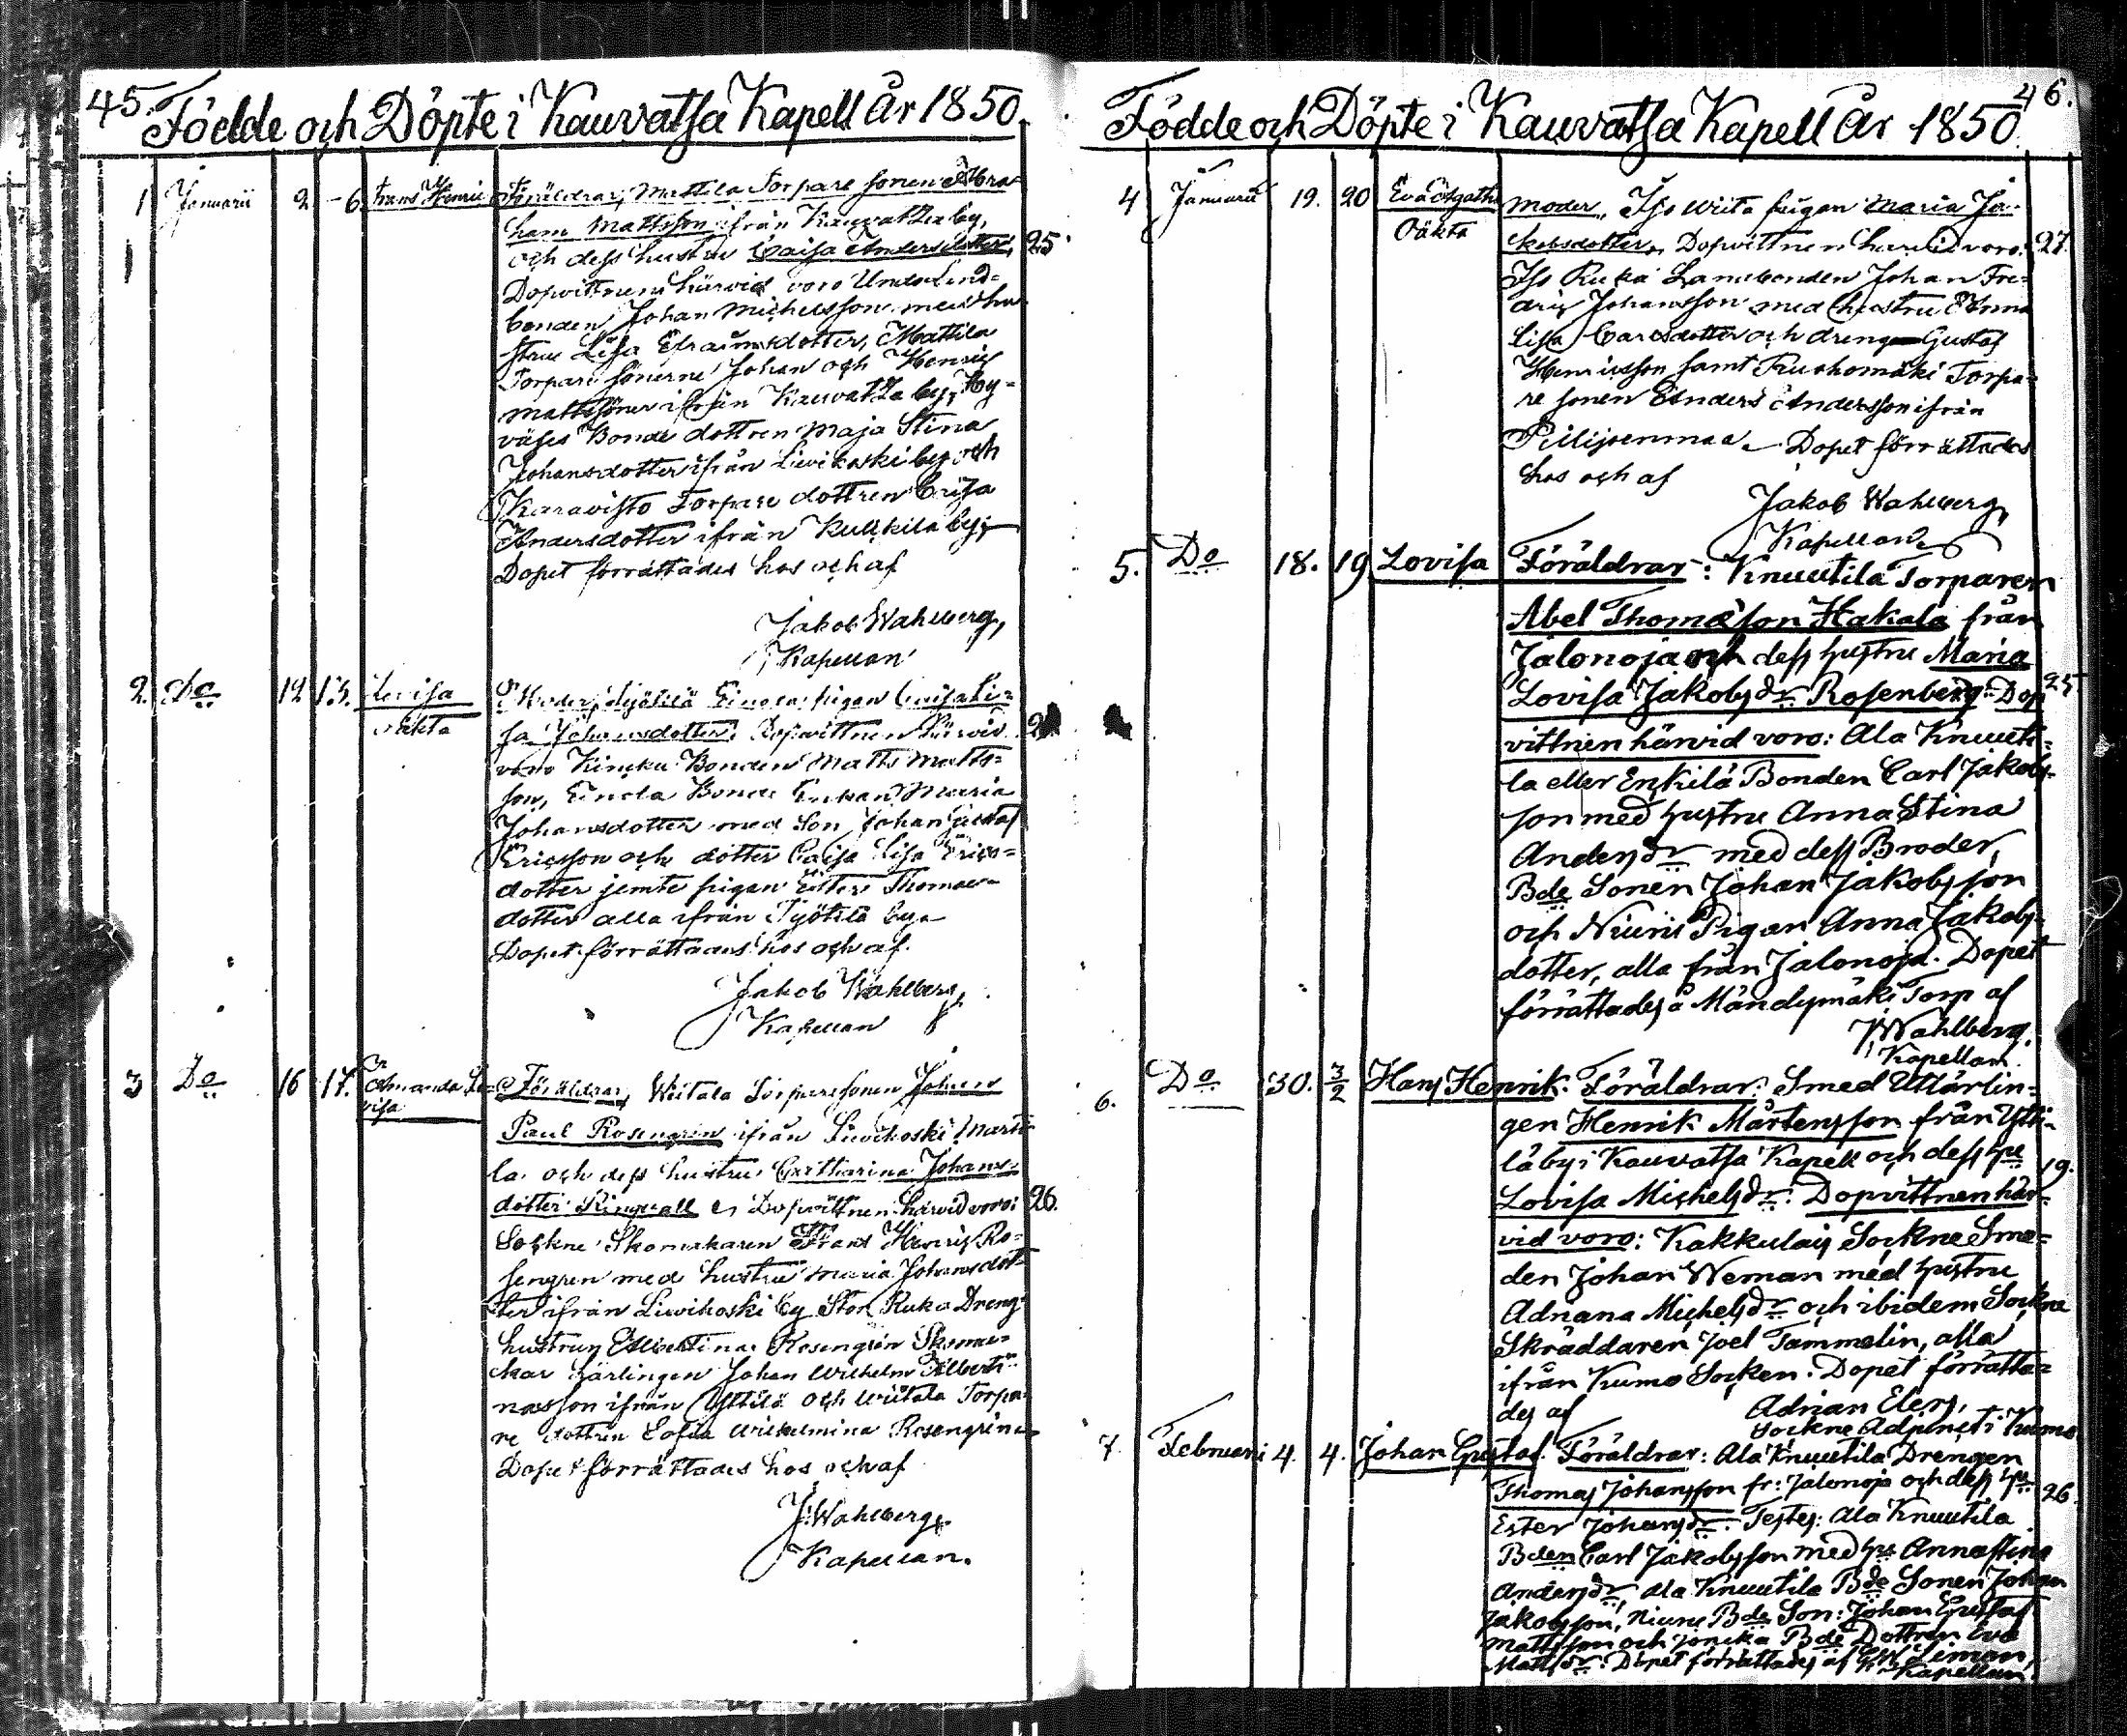 45.
Födde och Döpte i Kauvatsa Kapell År 1850.
1 Januarii 2. 6. Frans Henric Föräldrar, Mattila Torpare sonen Abra-
ham Mattsson ifrån Kauvatsa by,
och dess hustru Caisa Andersdotter, 25.
Dopvittnen härvid voro
bonden Johan Michelsson med hu-
stru Lisa Efraimsdotter, Mattila
Torpare sönerne Johan och Henric
Mattssöner ifrån Kauvatsa by, Hy-
väjes Bonde dottren Maja Stina
Johansdotter ifrån Liwikoski by och
Karavisto Torpare dottren Cajsa
Andersdotter ifrån Kulkila by,
Dopet förrättades hos och af
Jakob Wahlberg,
Kapellan
2. Do 12 13. Lovisa Moder, Pigan Caisa Li-
oäkta sa Johansdotter, Dopvittnen härvid
voro Bonden Matts Matts-
son, Bonde Enkan Maria
Johansdotter med Son Johan Gustaf
Ericsson och dotter Caisa Lisa Erics-
dotter jemte pigan Ester Thomae-
dotter alla ifrån Pyötilä by.
Dopet förrättades hos och af
Jakob Wahlberg,
Kapellan
3 Do 16 17. Amanda Lo- Föräldrar, Wiitala Torparesonen Johan
visa
Paul Rosengrén ifrån Liwikoski Marti-
la och dess hustru Catharina Johans-
dotter Ringvall. Dopvittnen härvid voro: 26.
Sockne Skomakaren Frans Henric Ro-
sengren med hustru Maria Johansdot-
ter ifrån Liwikoski by Stor Ruka Dreng
hustrun Albertina Rosengrén Skoma-
kar Lärlingen Johan Wilhelm Alberti-
nasson ifrån Yttilä och Wiitala Torpa-
re dottren Sofia Wilhelmina Rosengrén
Dopet förrättades hos och af
J. Wahlberg,
Kapellan.
46.
Födde och Döpte i Kauvatsa Kapell År 1850.
4 Januarii 19. 20 Eva Agatha Moder, Iso Wiita pigan Maria Ja-
Oäkta kobsdotter, Dopvittnen härvid voro: 27.
Iso Ruka Landbonden Johan Fre-
dric Johansson med hustru Anna
Lisa Carlsdotter och drengen Gustaf
Henricsson samt Ruohomäki Torpa-
re sonen Anders Andersson ifrån
Piilijoenmaa. Dopet förrättades
hos och af
Jakob Wahlberg,
Kapellan
5. Do 18. 19 Lovisa Föräldrar: Knuutila Torparen
Abel Thomæson Hakala från
Jalonoja och dess hustru Maria
Lovisa Jakobsdr Rosenberg. Dop 25
vittnen härvid voro: Ala Knuuti-
la eller Enkilä Bonden Carl Jakobs-
son med hustru Anna Stina
Andersdr med dess Broder,
Bde Sonen Johan Jakobsson
och Niuni Pigan Anna Jakobs-
dotter, alla från Jalonoja. Dopet
förrättades å Mändysmäki Torp af
J. Wahlberg,
Kapellan.
6. Do 30. 3/2 Hans Henrik. Föräldrar: Smed Utlärlin-
gen Henrik Mårtensson från Ytti-
lä by i Kauvatsa Kapell och dess hu 19.
Lovisa Michelsdr: Dopvittnen här-
vid voro: Kakkulais Sockne Sme-
den Johan Weman med hustru
Adriana Michelsdr och ibidem Sockne
Skräddaren Joel Tammelin, alla
ifrån Kumo Socken. Dopet förrätta-
des af Adrian Elers,
Sockne Adjunct i Kumo
7. Februari 4. 4. Johan Gustaf. Föräldrar: Ala Knuutila Drengen
Thomas Johansson fr: Jalonoja och dess hu 26.
Ester Johansdr. Testes: Ala Knuutila
Bden Carl Jakobsson med hu Anna Stina
Andersdr, Ala Knuutila Bde Sonen Johan
Jakobsson, Niuni Bde Son: Johan Gustaf
Mattsson och Jonika Bde Dottren Eva
Mattsdr: Dopet förrättades af
Kapellan.